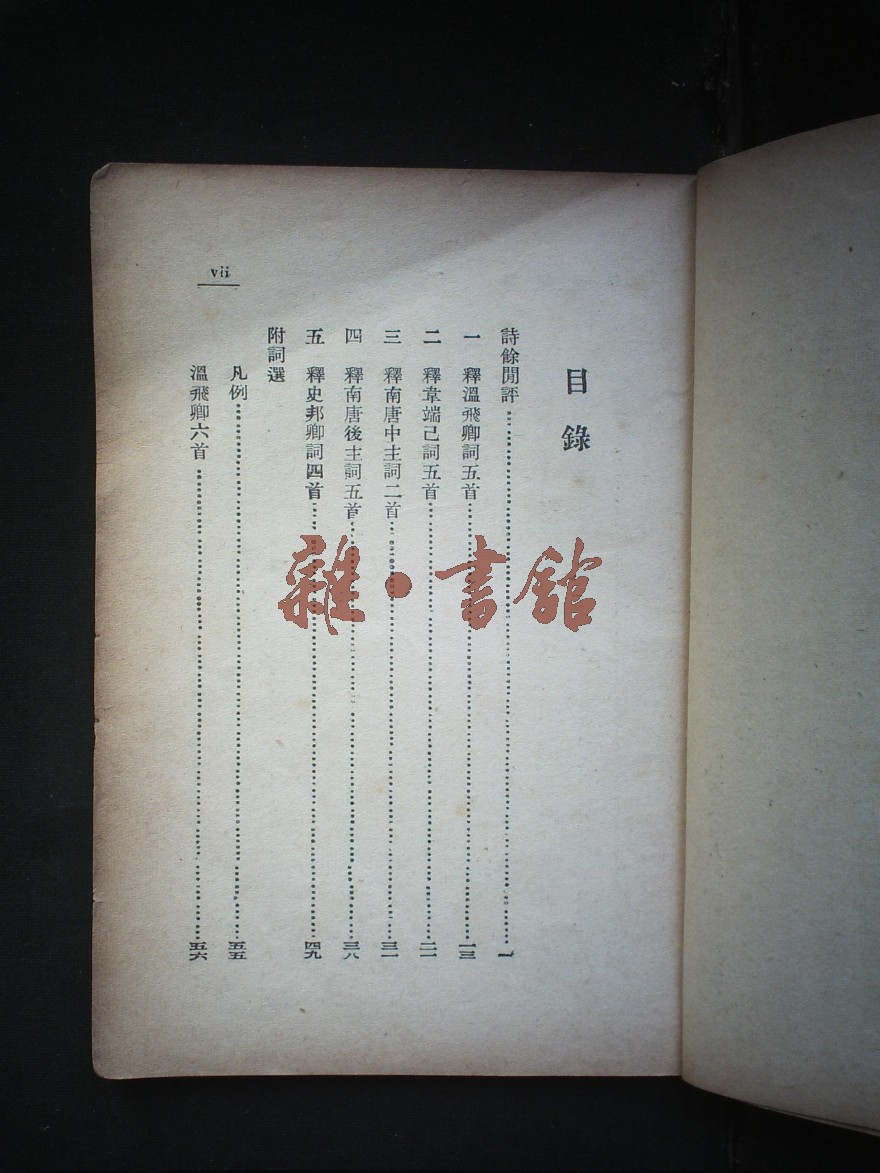 目錄
詩餘閒評……一
一 釋溫飛卿詞五首……一三
二 釋韋端己詞五首……二一
三 釋南唐中主詞二首……三一
四 釋南唐後主詞五首……三八
五 釋史邦卿詞四首……四九
附詞選
凡例……五五
溫飛卿六首……五六
vii
雜·書館